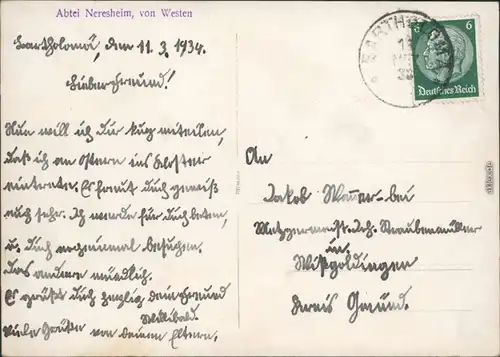 Abtei Neresheim, von Westen
Bartholomä, den 11.3.1934.
Lieber Freund!
Nun will ich Dir kurz mitteilen,
daß ich an Ostern ins Kloster
eintrete. Es freut Dich gewiß
auch sehr. Ich werde für Dich beten,
u. Dich noch einmal besuchen.
Das andere mündlich.
Es grüßt Dich herzlich Dein Freund
Willibald.
Viele Grüße von Deinen Eltern.
BARTHOLOMÄ
6 6
Deutsches Reich
An
Jakob bei
Metzgermeist. Joh. Straubenmüller
in
Wißgoldingen
Kreis Gmünd.